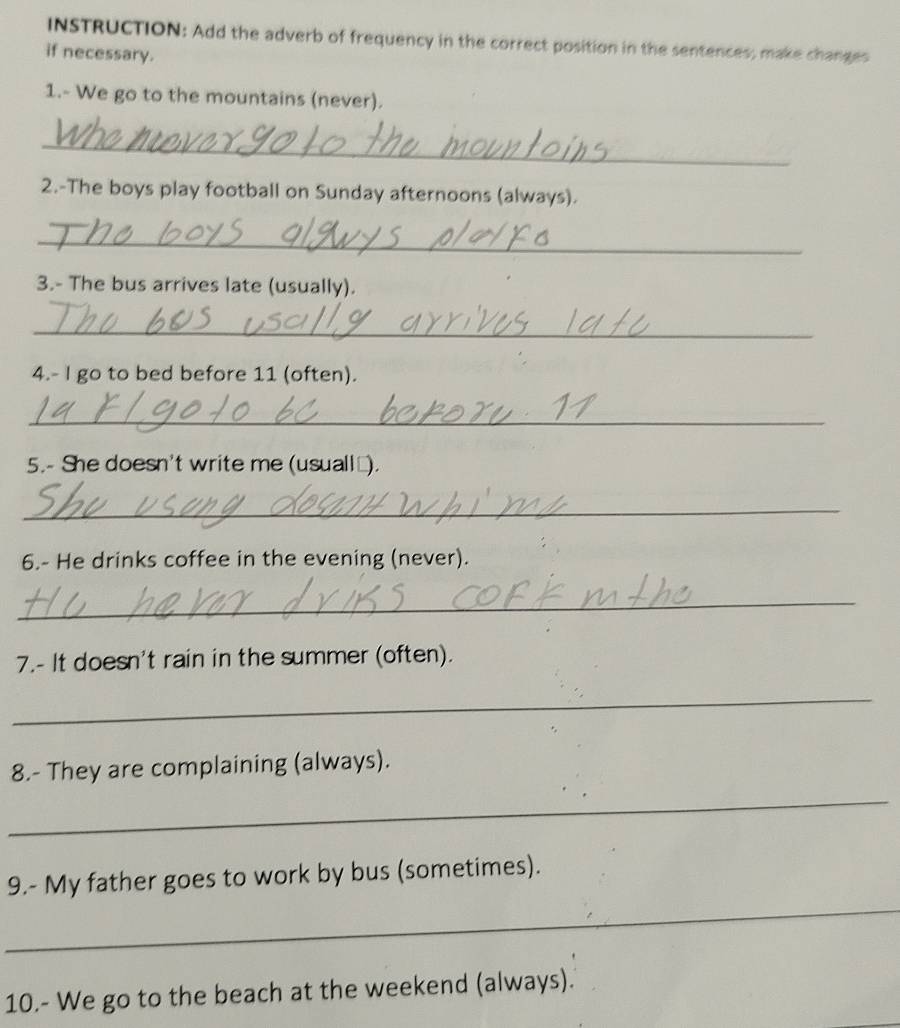 INSTRUCTION: Add the adverb of frequency in the correct position in the sentences; make changes
if necessary.
1.- We go to the mountains (never).
go to the mountoins
2.-The boys play football on Sunday afternoons (always).
The boys algwys
3.- The bus arrives late (usually).
The bus usally arrives late
4.- I go to bed before 11 (often).
go to 11
5.- She doesn't write me (usuall□).
She
6.- He drinks coffee in the evening (never).
He never
7.- It doesn't rain in the summer (often).
8.- They are complaining (always).
9.- My father goes to work by bus (sometimes).
10.- We go to the beach at the weekend (always).